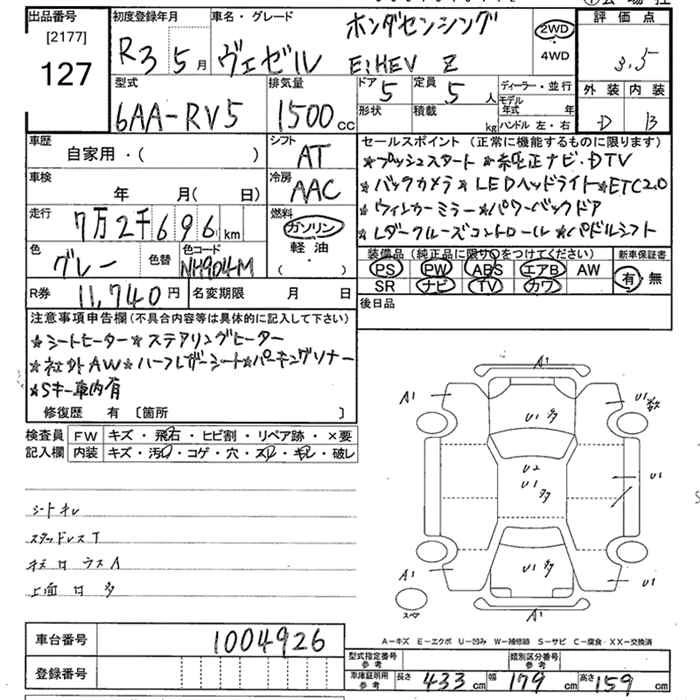 出品番号 初度登録年月 車名・グレード ホンダセンシング 2WD 評価点
[2177] R3 5月 ヴェゼル e:HEV Z ・4WD 3.5
127 型式 排気量 ドア 定員 ディーラー・並行 外装 内装
6AA-RV5 1500cc 5 5人 モデル年式 年 D B
形状 積載 kg ハンドル 左・右
車歴 シフト セールスポイント (正常に機能するものに限ります)
自家用・( ) AT *プッシュスタート *純正ナビ・DTV
車検 冷房 *バックカメラ *LEDヘッドライト*ETC2.0
年 月( 日) AAC *ウィンカーミラー *パワーバックドア
走行 7万2千696km 燃料 *Lダークルーズコントロール *パドルシフト
ガソリン
色 色替 色コード 軽油 装備品(純正品に限り○をつけてください) 新車保証書
グレー NH904M ( ・ ) PS PW ABS エアB AW 有・無
SR ナビ TV カワ
R券 11,740円 名変期限 月 日 後日品
注意事項申告欄(不具合内容等は具体的に記入して下さい)
*シートヒーター *ステアリングヒーター
*社外AW *ハーフレザーシート*パーキングソナー
*Sキー車内有
修復歴 有 〔箇所 〕
検査員 FW キズ・飛石・ヒビ割・リペア跡・×要
記入欄 内装 キズ・汚れ・コゲ・穴・スレ・キレ・破レ
A1
A1 U1
U1 多
U2
U1 多
U1
シートキレ
スタッドレスT
U1 多
A1 A1
上面 キズ 多
スペア A1
A-キズ E-エクボ U-凹み W-補修跡 S-サビ C-腐食 XX-交換済
車台番号 1004926
型式指定番号 参考 類別区分番号 参考
登録番号 車庫証明用 参考 長さ 433cm 幅 179cm 高さ 159cm